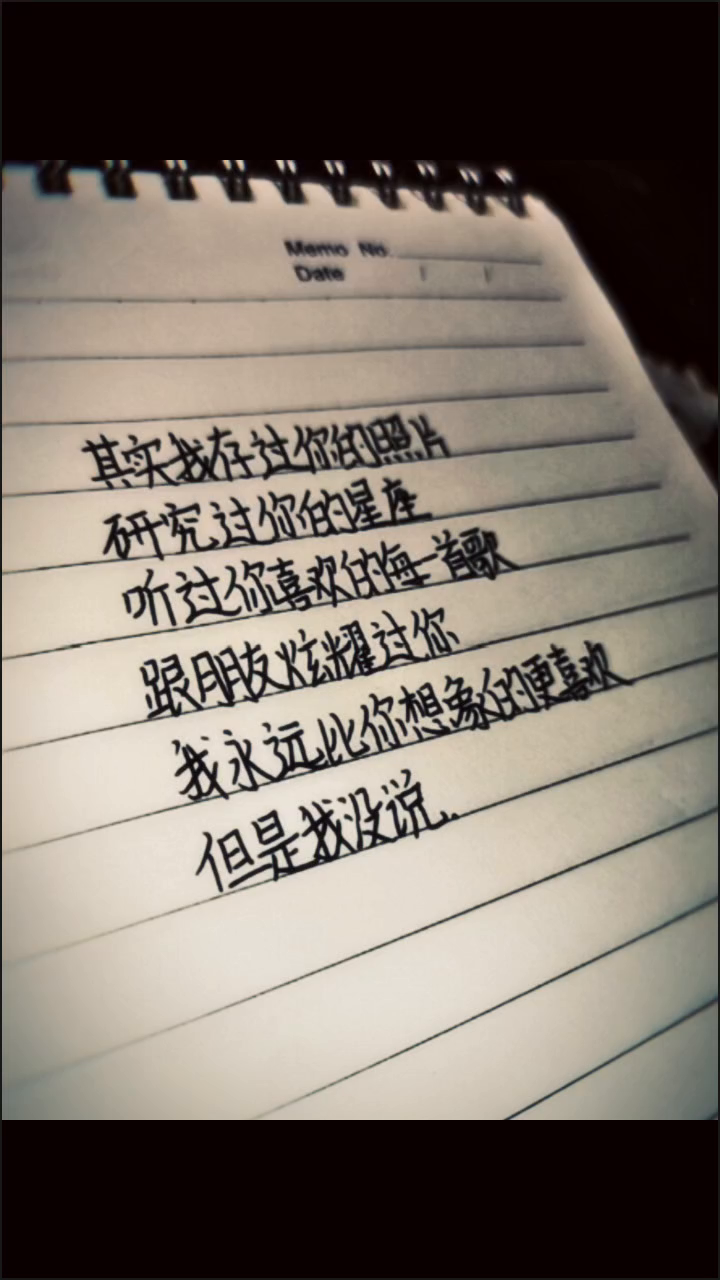 Memo No.
Date / /
其实我存过你的照片
研究过你的星座
听过你喜欢的每一首歌
跟朋友炫耀过你
我永远比你想象的更喜欢
但是我没说..